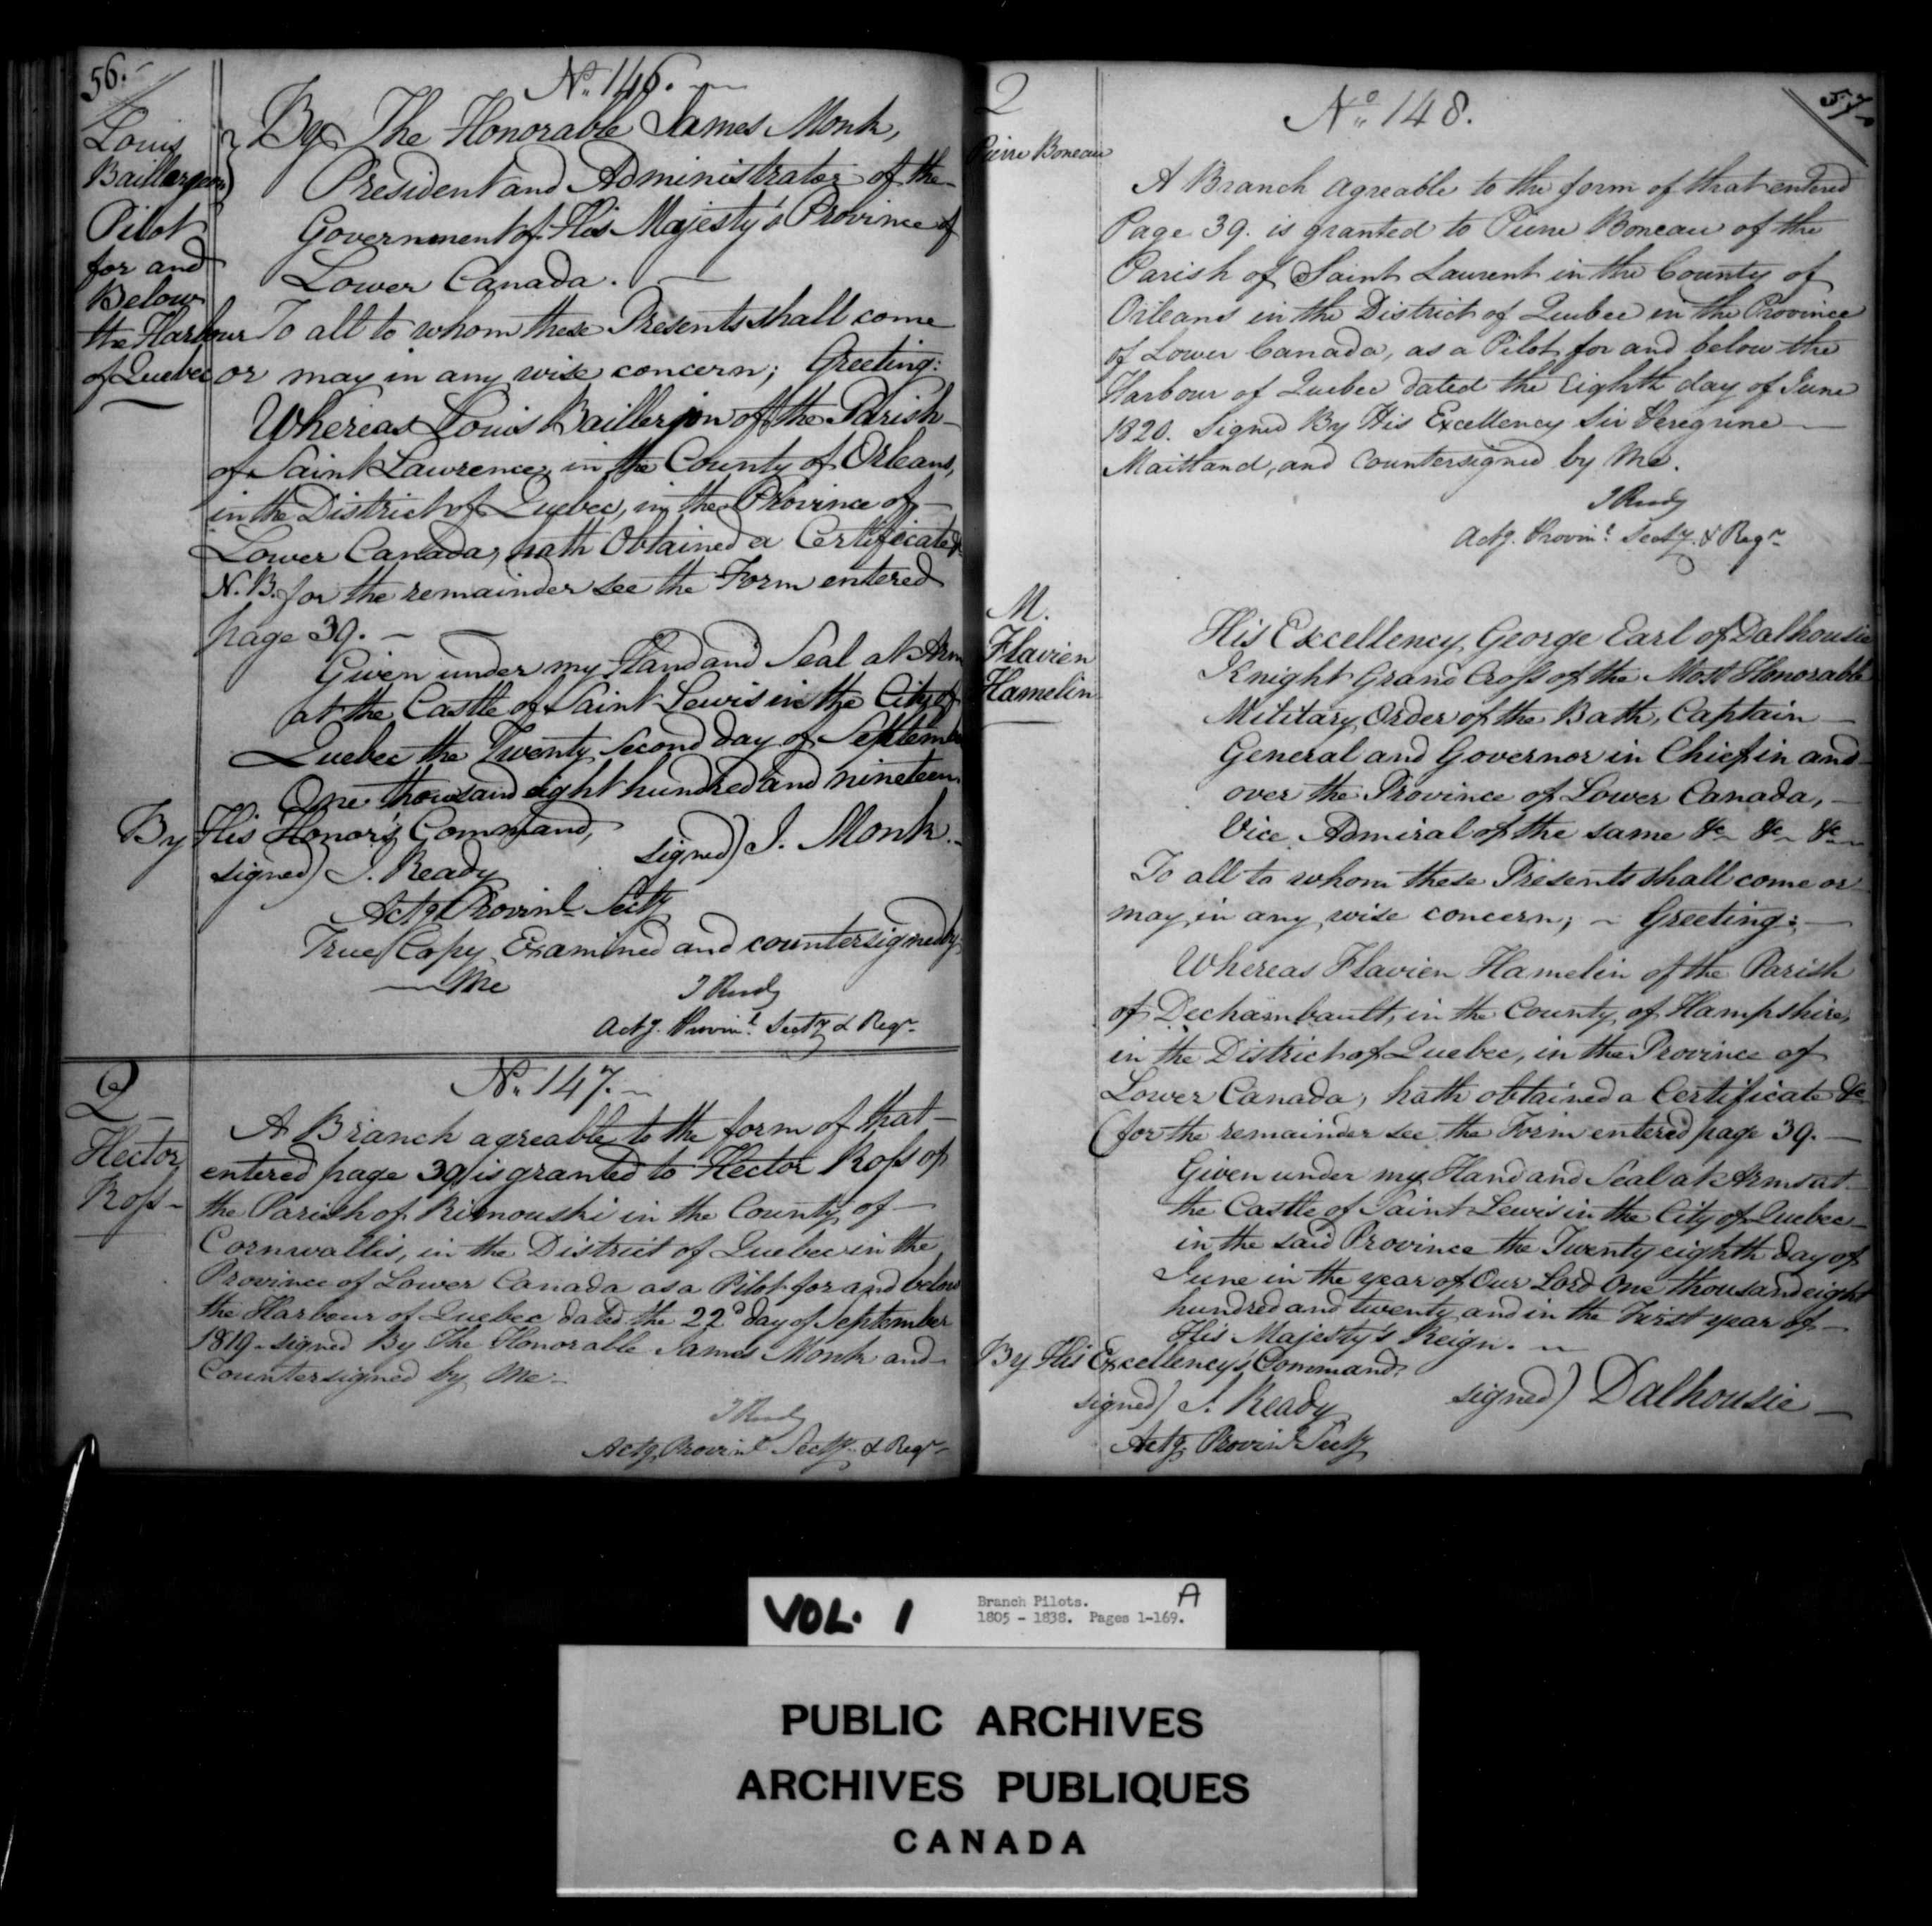 56.
Louis
Baillargeon
Pilot
for and
Below
the Harbour
of Quebec
No. 146.
By The Honorable James Monk,
President and Administrator of the
Government of His Majesty's Province of
Lower Canada.
To all to whom these Presents shall come
or may in any wise concern; Greeting:
Whereas Louis Baillerjon of the Parish
of Saint Lawrence, in the County of Orleans,
in the District of Quebec, in the Province of
Lower Canada, hath Obtained a Certificate &c
N.B. for the remainder see the Form entered
page 39.
Given under my Hand and Seal at Arm
at the Castle of Saint Lewis in the City of
Quebec the Twenty Second day of Septembe
One thousand eight hundred and nineteen
By His Honor's Command,
signed) J. Monk.
signed) J. Ready
Actg Provinl. Secty
True Copy Examined and countersigned by
Me
J Ready
Actg. Provinl. Secty & Regr.
2
Hector
Roſs
No. 147.
A Branch agreable to the form of that
entered page 39 is granted to Hector Roſs of
the Parish of Rimouski in the County of
Cornwallis, in the District of Quebec in the
Province of Lower Canada as a Pilot for and below
the Harbour of Quebec dated the 22d day of September
1819 - signed By The Honorable James Monk and
Countersigned by Me -
J Ready
Actg Provinl Secty. & Regr.
57
2
Pierre Boneau
No. 148.
A Branch agreable to the form of that entered
Page 39. is granted to Pierre Boneau of the
Parish of Saint Laurent in the County of
Orleans in the District of Quebec in the Province
of Lower Canada, as a Pilot for and below the
Harbour of Quebec dated the Eighth day of June
1820. Signed By His Excellency Sir Peregrine
Maitland, and Countersigned by Me.
J Ready
Actg. Provinl. Secty. & Regr.
M.
Flavien
Hamelin
His Excellency George Earl of Dalhousie
Knight Grand Croſs of the Most Honorable
Military Order of the Bath, Captain
General and Governor in Chief in and
over the Province of Lower Canada,
Vice Admiral of the same &c &c &c
To all to whom these Presents shall come or
may in any wise concern; - Greeting:
Whereas Flavien Hamelin of the Parish
of Dechambault, in the County of Hampshire,
in the District of Quebec, in the Province of
Lower Canada, hath obtained a Certificate &c
(for the remainder see the Form entered page 39.
Given under my Hand and Seal at Arms at
the Castle of Saint Lewis in the City of Quebec
in the said Province the Twenty eighth day of
June in the year of Our Lord One thousand eight
hundred and twenty and in the First year of
His Majesty's Reign.
By His Excellency's Command.
signed) J. Ready
signed) Dalhousie
Actg. Provinl Secty
VOL. 1
Branch Pilots.
1805 - 1838. Pages 1-169.
A
PUBLIC ARCHIVES
ARCHIVES PUBLIQUES
CANADA